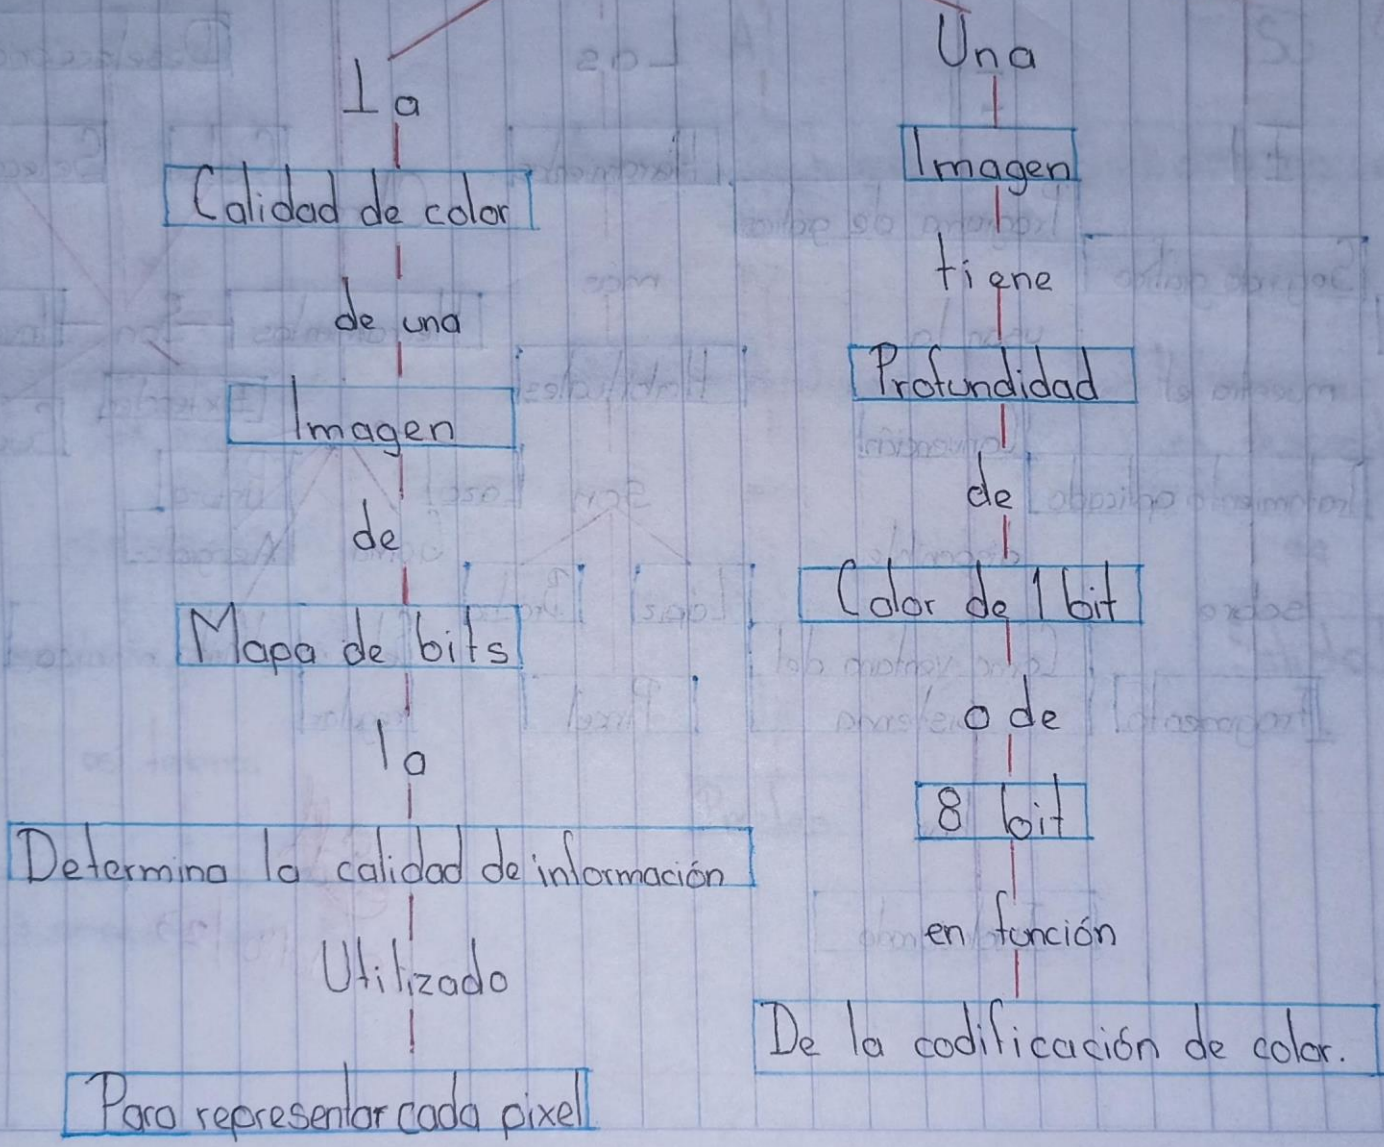 la
Calidad de color
de una
Imagen
de
Mapa de bits
la
Determina la calidad de información
Utilizado
Para representar cada pixel
Una
Imagen
tiene
Profundidad
de
Color de 1 bit
o de
8 bit
en función
De la codificación de color.